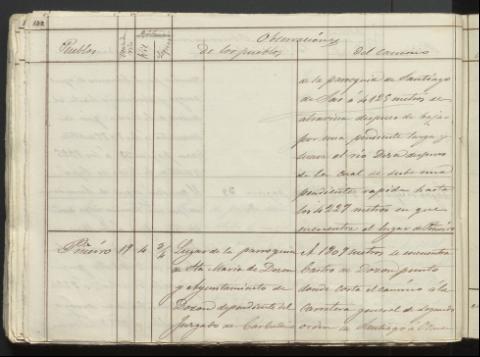 Observaciones
Pueblos
Kil
de los pueblos
Del camino
de la parroquia de Santiago
de Sas á 4125 metros se
atraviesa despues de bajar
por una pendiente larga y
suave el rio Deza despues
de la cual se sube una
pendiente rapida hasta
los 4227 metros en que
se encuentra el lugar de Piñeiro
Piñeiro 19 4 3/4
Lugar de la parroquia
de Sta. Maria de Dozon
y ayuntamiento de
Dozon dependiente del
Juzgado de
A 1909 metros se encuentra
Castro de Dozon punto
donde corta el camino á la
Carretera general de segundo
orden de Santiago á